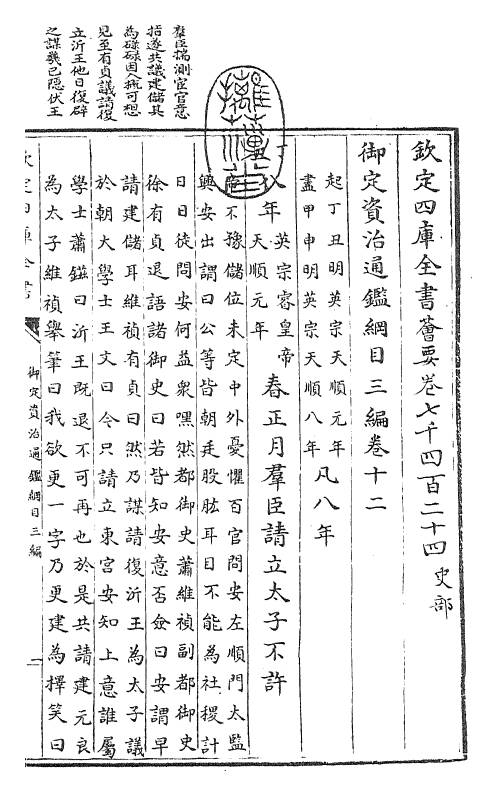 欽定四庫全書薈要卷七千四百二十四 史部
御定資治通鑑綱目三編卷十二
起丁丑明英宗天順元年
盡甲申明英宗天順八年 凡八年
八年 英宗睿皇帝
天順元年 春正月羣臣請立太子不許
不豫儲位未定中外憂懼百官問安左順門太監
興安出謂曰公等皆朝廷股肱耳目不能為社稷計
日日徒問安何益衆嘿然都御史蕭維禎副都御史
徐有貞退語諸御史曰若皆知安意否僉曰安謂早
請建儲耳維禎有貞曰然乃謀請復沂王為太子議
於朝大學士王文曰今只請立東宮安知上意誰屬
學士蕭鎡曰沂王既退不可再也於是共請建元良
為太子維禎舉筆曰我欲更一字乃更建為擇笑曰
羣臣揣測宦官意
指遂共議建儲其
為碌碌因人概可想
見至有貞議請復
立沂王他日復辟
之謀幾已隱伏王
欽定四庫全書
御定資治通鑑綱目三編
一